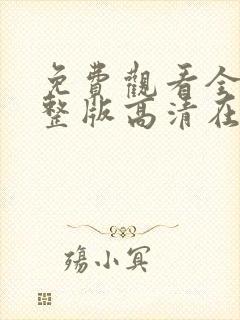 免費觀看全
整版高清在
殤小冥